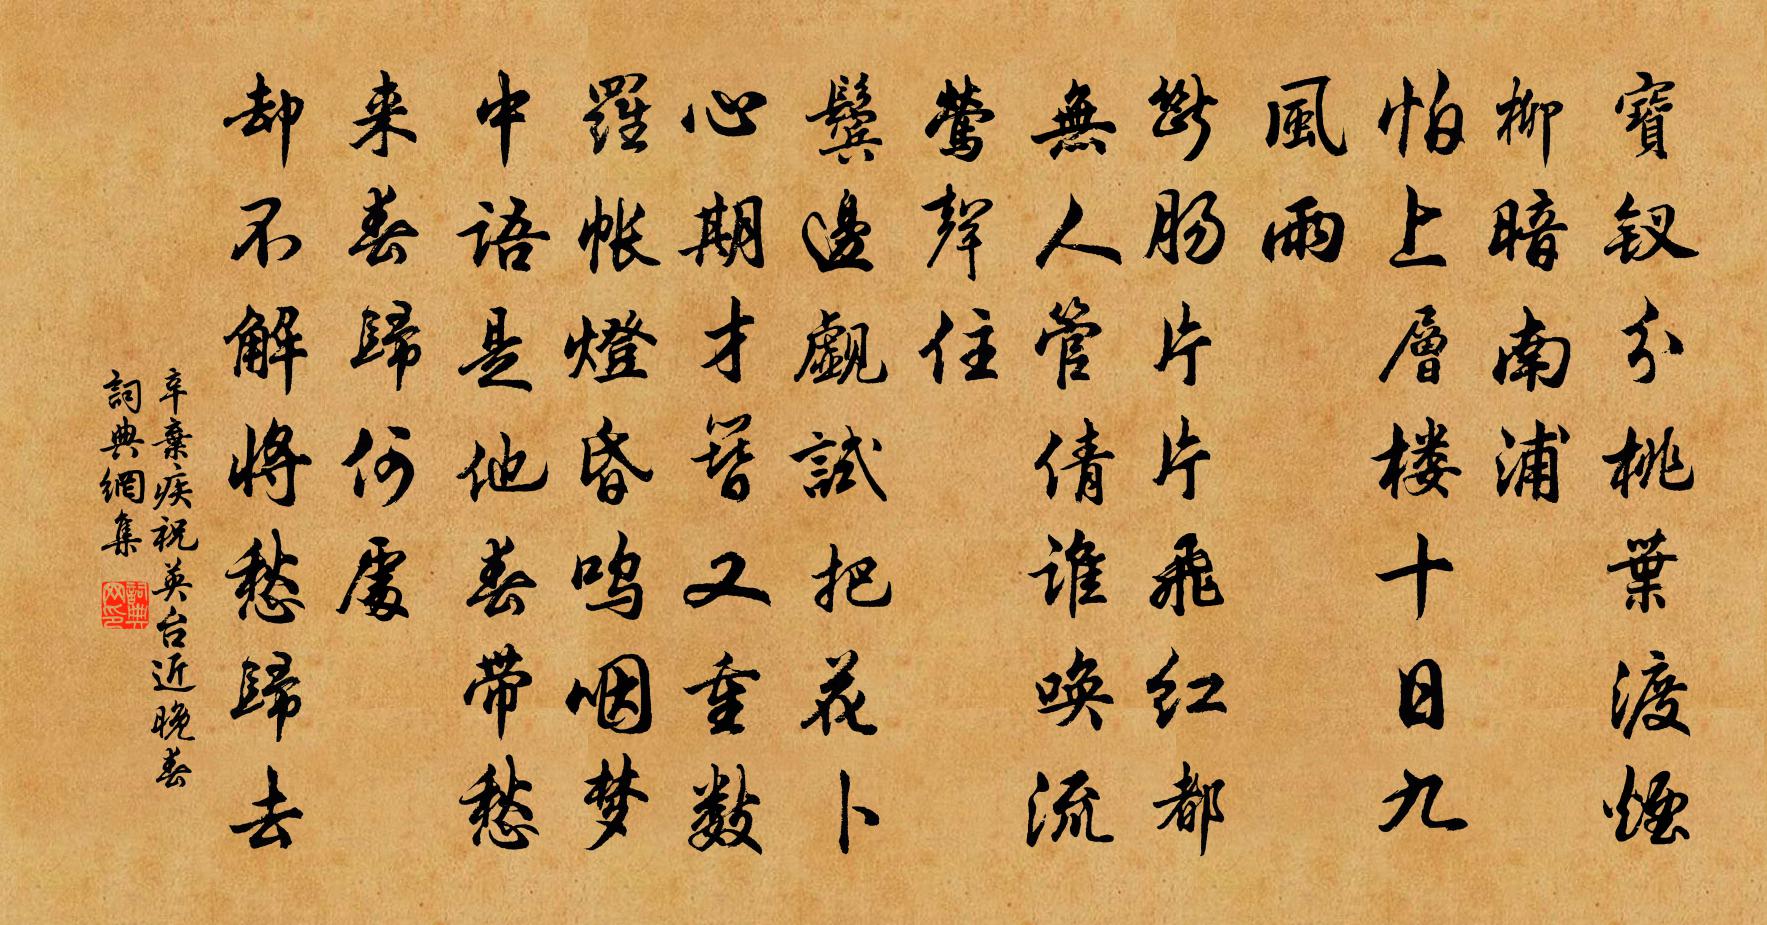 寶釵分桃葉渡煙
柳暗南浦
怕上層楼十日九
風雨
斷肠片片飛红都
無人管倩谁唤流
鶯聲住
鬓邊覷試把花卜
心期才簪又重数
羅帐燈昏呜咽梦
中语是他春带愁
来春歸何處
却不解将愁歸去
辛棄疾祝英台近晚春
詞典網集
詞典网印